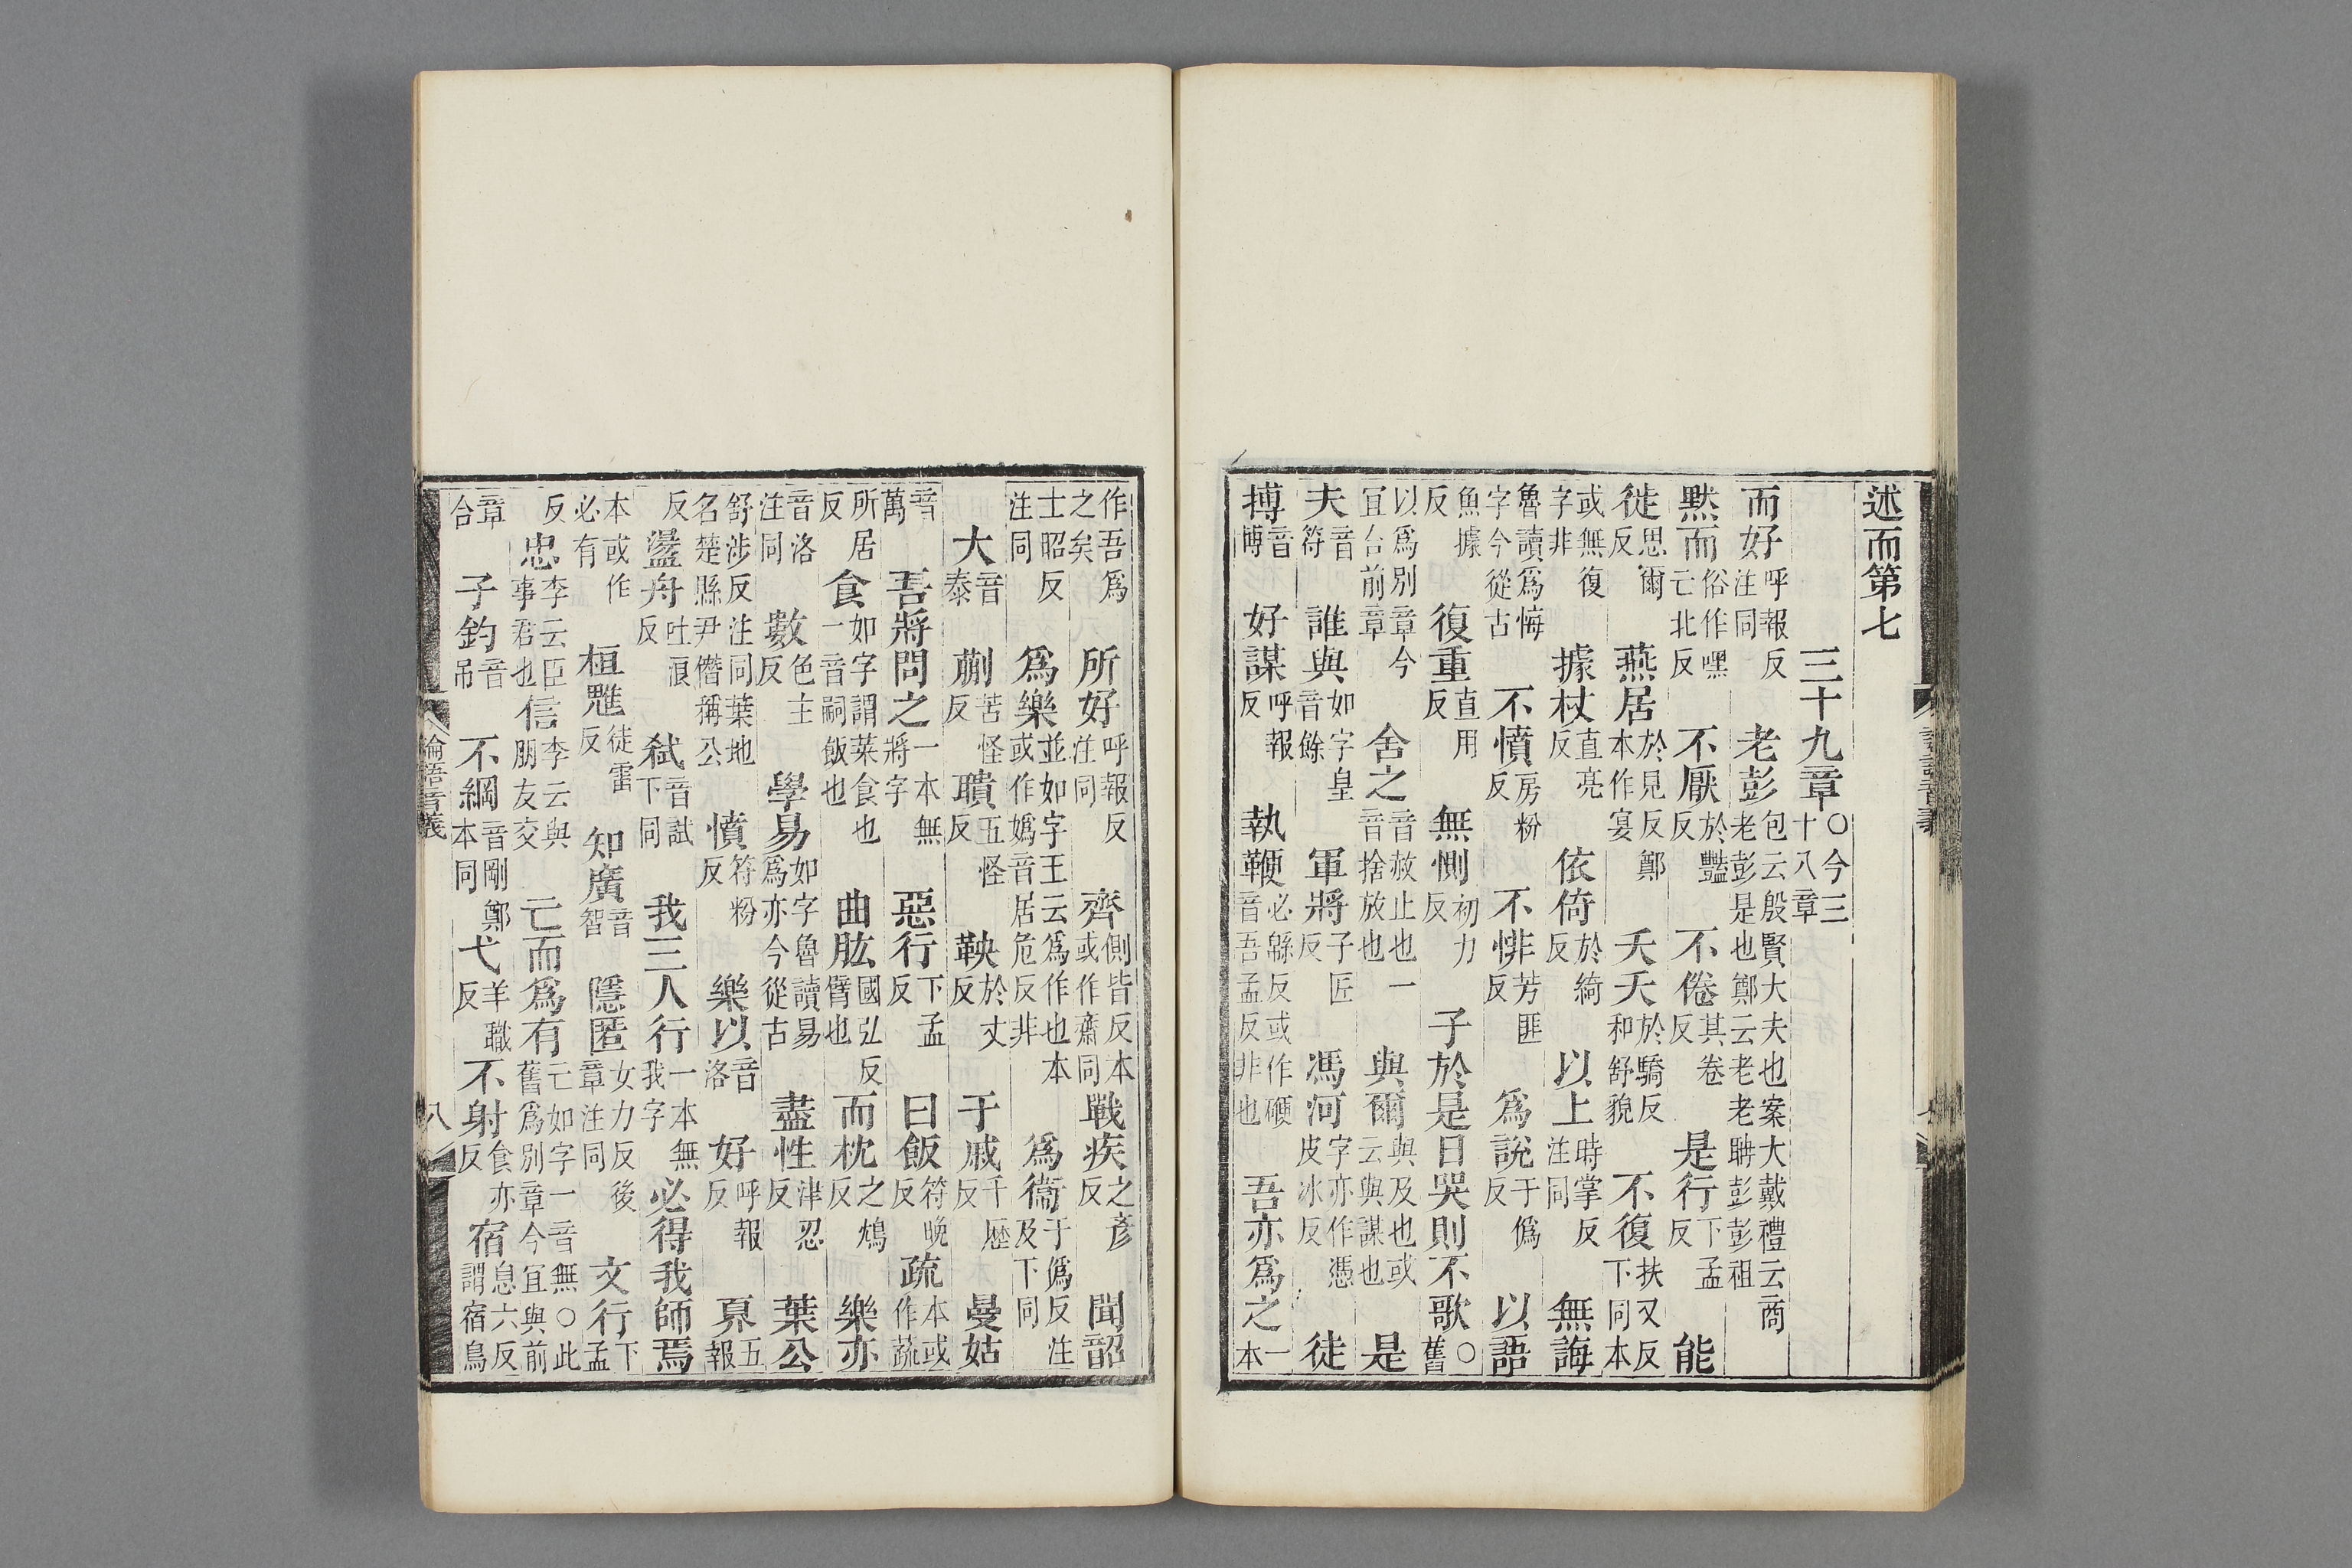 述而第七
三十九章○今三十八章
而好呼報反注同老彭包云殷賢大夫也案大戴禮云商老彭是也鄭云老老聃彭彭祖
默而俗作嘿亡北反不厭於豔反不倦其卷反是行下孟反能
徙思爾反燕居於見反鄭本作宴夭夭於驕反和舒貌不復扶又反下同本
或無復字非據杖直亮反依倚於綺反以上時掌反注同無誨
魯讀爲悔字今從古不憤房粉反不悱芳匪反爲說于僞反以語
魚據反復重直用反無惻初力反子於是日哭則不歌○舊
以爲別章今冝合前章舍之音赦止也一音捨放也與爾與及也或云與謀也是
夫音符誰與如字皇音餘軍將子匠反馮河字亦作憑皮冰反徒
搏音博好謀呼報反執鞭必緜反或作硬音吾孟反非也吾亦爲之一本
作吾爲之矣所好呼報反注同齊側皆反本或作齋同戰疾之彥反聞韶
士昭反注同爲樂並如字王云爲作也本或作嬀音居危反非爲衞于僞反注及下同
大音泰蒯苦怪反聵五怪反鞅於丈反于戚千歷反曼姑
音萬吾將問之一本無將字惡行下孟反曰飯符晚反疏本或作蔬
所居反食如字謂菜食也一音嗣飯也曲肱國弘反臂也而枕之鴆反樂亦
音洛注同數色主反學易如字魯讀易爲亦今從古盡性津忍反葉公
舒涉反注同葉地名楚縣尹僭稱公憤符粉反樂以音洛好呼報反奡五報
反盪舟吐浪反弑音試下同我三人行一本無我字必得我師焉
本或作必有桓魋徒雷反知廣音智隱匿女力反後章注同文行下孟
反忠李云臣事君也信李云與朋友交亡而爲有亡如字一音無○此舊爲別章今冝與前
章合子釣音吊不綱音剛鄭本同弋羊職反不射食亦反宿息六反謂宿鳥
論語音義
八